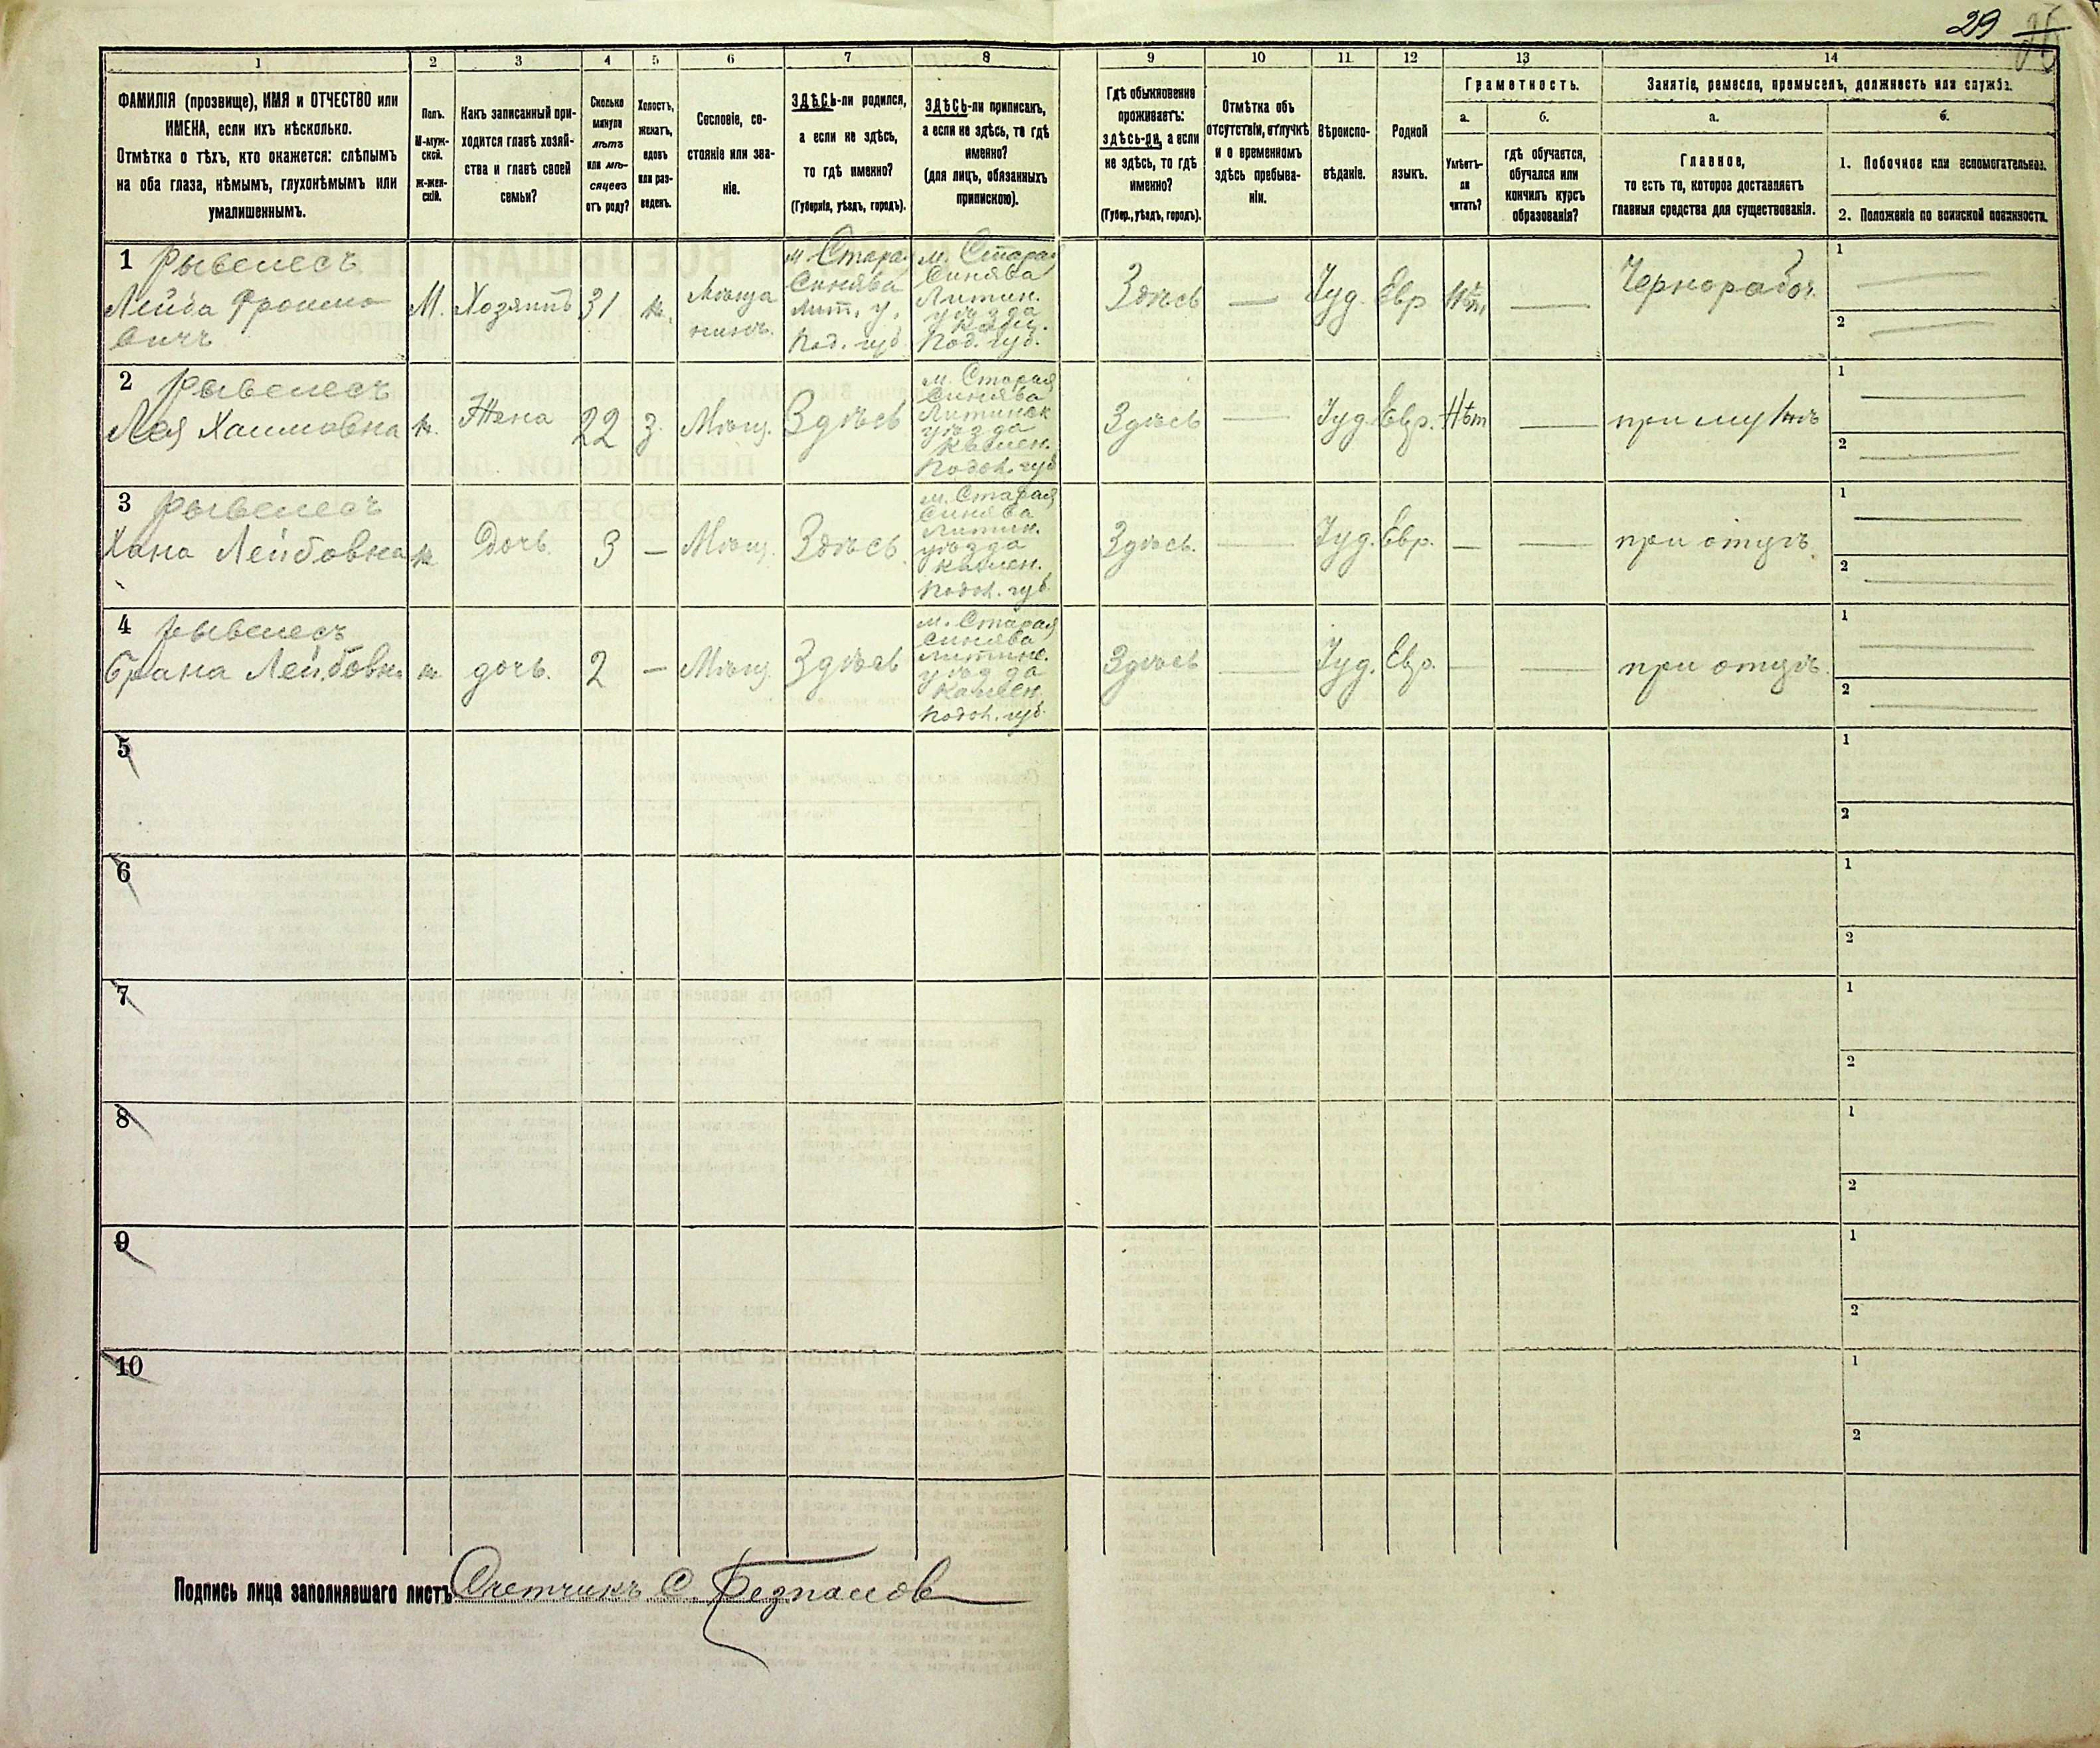 29
1 2 3 4 5 6 7 8 9 10 11 12 13 14
ФАМИЛІЯ (прозвище), ИМЯ и ОТЧЕСТВО или
ИМЕНА, если ихъ нѣсколько.
Отмѣтка о тѣхъ, кто окажется: слѣпымъ
на оба глаза, нѣмымъ, глухонѣмымъ или
умалишеннымъ.
Полъ.
М-муж-
ской.
Ж-жен-
скій.
Какъ записанный при-
ходится главѣ хозяй-
ства и главѣ своей
семьи?
Сколько
минуло
лѣтъ
или мѣ-
сяцевъ
отъ роду?
Холостъ,
женатъ,
вдовъ
или раз-
веденъ.
Сословіе, со-
стояніе или зва-
ніе.
ЗДѢСЬ-ли родился,
а если не здѣсь,
то гдѣ именно?
(Губернія, уѣздъ, городъ).
ЗДѢСЬ-ли приписанъ,
а если не здѣсь, то гдѣ
именно?
(для лицъ, обязанныхъ
припискою).
Гдѣ обыкновенно
проживаетъ:
здѣсь-ли, а если
не здѣсь, то гдѣ
именно?
(Губер., уѣздъ, городъ).
Отмѣтка объ
отсутствіи, отлучкѣ
и о временномъ
здѣсь пребыва-
ніи.
Вѣроиспо-
вѣданіе.
Родной
языкъ.
Грамотность.
а.
Умѣетъ-
ли
читать?
б.
гдѣ обучается,
обучался или
кончилъ курсъ
образованія?
Занятіе, ремесло, промыселъ, должность или служба.
а.
Главное,
то есть то, которое доставляетъ
главныя средства для существованія.
б.
1. Побочное или вспомогательное.
2. Положеніе по воинской повинности.
1 Рывелесъ
Лейба Фроимо
вичъ
М.
Хозяинъ
31
ж.
Мѣща
нинъ.
м. Старая
Синява
Лит. у.
Под. губ.
м. Старая
Синява
Литин.
уѣзда
Камен.
Под. губ.
Здѣсь
—
Іуд.
Евр
Нѣт,
—
Чернорабоч.
1 —
2 —
2 Рывелесъ
Лея Хаимовна
ж.
Жена
22
з.
Мѣщ.
Здѣсь
м. Старая
Синява
Литинск
уѣзда
Камен.
Подол. губ
Здѣсь
—
Іуд.
Евр.
Нѣт
—
при мужѣ
1 —
2 —
3 Рывелесъ
Хана Лейбовна
ж
Дочь
3
—
Мѣщ.
Здѣсь
м. Старая
Синява
Литин.
уѣзда
Камен.
Подол. губ.
Здѣсь.
—
Іуд.
Евр.
—
—
при отцѣ.
1 —
2 —
4 Рывелесъ
Брана Лейбовн.
ж.
дочь.
2
—
Мѣщ.
Здѣсь
м. Старая
Синява
Литинс.
уѣзда
Камен.
Подол. губ.
Здѣсь
—
Іуд.
Евр.
—
—
при отцѣ.
1 —
2 —
5
1
2
6
1
2
7
1
2
8
1
2
9
1
2
10
1
2
Подпись лица заполнявшаго листъ Счетчикъ С.